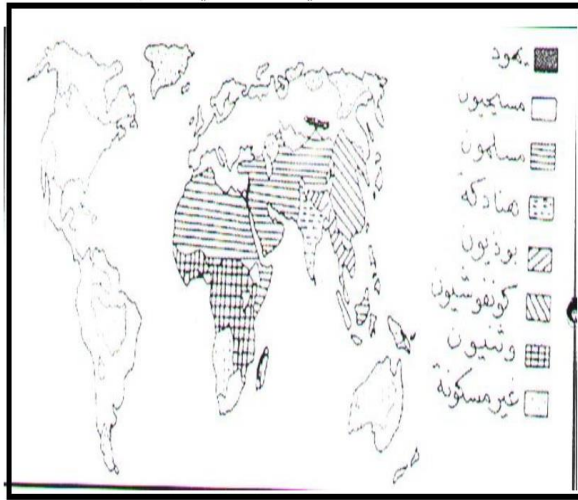 يهود
مسيحيون
مسلمون
هنادكة
بوذيون
كونفوشيون
وثنيون
غير مسكونة